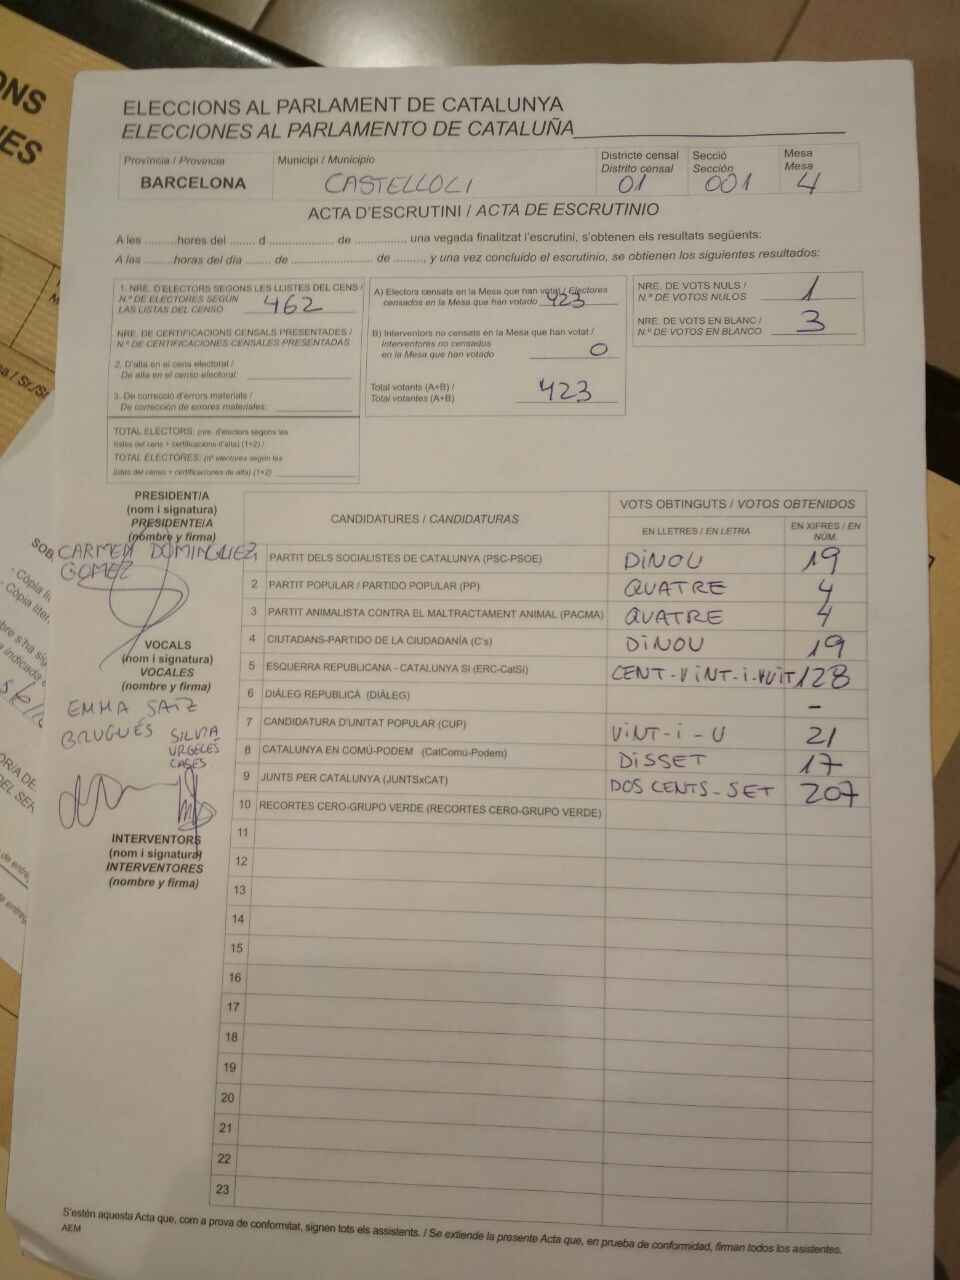 ONS
ES
ELECCIONS AL PARLAMENT DE CATALUNYA
ELECCIONES AL PARLAMENTO DE CATALUÑA
Província / Provincia
BARCELONA
Municipi / Municipio
CASTELLOLI
Districte censal
Distrito censal
01
Secció
Sección
001
Mesa
Mesa
4
ACTA D'ESCRUTINI / ACTA DE ESCRUTINIO
A les ..........hores del ........ d .................... de ..............., una vegada finalitzat l'escrutini, s'obtenen els resultats següents:
A las ..........horas del día ........ de .................... de .........., y una vez concluido el escrutinio, se obtienen los siguientes resultados:
1. NRE. D'ELECTORS SEGONS LES LLISTES DEL CENS /
N.º DE ELECTORES SEGÚN
LAS LISTAS DEL CENSO 462
NRE. DE CERTIFICACIONS CENSALS PRESENTADES /
N.º DE CERTIFICACIONES CENSALES PRESENTADAS
2. D'alta en el cens electoral /
De alta en el censo electoral:
3. De correcció d'errors materials /
De corrección de errores materiales:
TOTAL ELECTORS: (nre. d'electors segons les
llistes del cens + certificacions d'alta) (1+2) /
TOTAL ELECTORES: (nº electores según las
listas del censo + certificaciones de alta) (1+2)
A) Electors censats en la Mesa que han votat / Electores
censados en la Mesa que han votado 423
B) Interventors no censats en la Mesa que han votat /
Interventores no censados
en la Mesa que han votado 0
Total votants (A+B) /
Total votantes (A+B) 423
NRE. DE VOTS NULS /
N.º DE VOTOS NULOS 1
NRE. DE VOTS EN BLANC /
N.º DE VOTOS EN BLANCO 3
PRESIDENT/A
(nom i signatura)
PRESIDENTE/A
(nombre y firma)
CARMEN DOMINGUEZ
GOMEZ
VOCALS
(nom i signatura)
VOCALES
(nombre y firma)
EMMA SAIZ
BRUGUÉS
SILVIA
URGELÉS
CASES
INTERVENTORS
(nom i signatura)
INTERVENTORES
(nombre y firma)
CANDIDATURES / CANDIDATURAS
VOTS OBTINGUTS / VOTOS OBTENIDOS
EN LLETRES / EN LETRA
EN XIFRES / EN
NÚM.
1 PARTIT DELS SOCIALISTES DE CATALUNYA (PSC-PSOE) DINOU 19
2 PARTIT POPULAR / PARTIDO POPULAR (PP) QUATRE 4
3 PARTIT ANIMALISTA CONTRA EL MALTRACTAMENT ANIMAL (PACMA) QUATRE 4
4 CIUTADANS-PARTIDO DE LA CIUDADANÍA (C's) DINOU 19
5 ESQUERRA REPUBLICANA - CATALUNYA SÍ (ERC-CatSí) CENT-VINT-I-VUIT 128
6 DIÀLEG REPUBLICÀ (DIÀLEG) -
7 CANDIDATURA D'UNITAT POPULAR (CUP) VINT-I-U 21
8 CATALUNYA EN COMÚ-PODEM (CatComú-Podem) DISSET 17
9 JUNTS PER CATALUNYA (JUNTSxCAT) DOS CENTS-SET 207
10 RECORTES CERO-GRUPO VERDE (RECORTES CERO-GRUPO VERDE)
11
12
13
14
15
16
17
18
19
20
21
22
23
S'estén aquesta Acta que, com a prova de conformitat, signen tots els assistents. / Se extiende la presente Acta que, en prueba de conformidad, firman todos los asistentes.
AEM